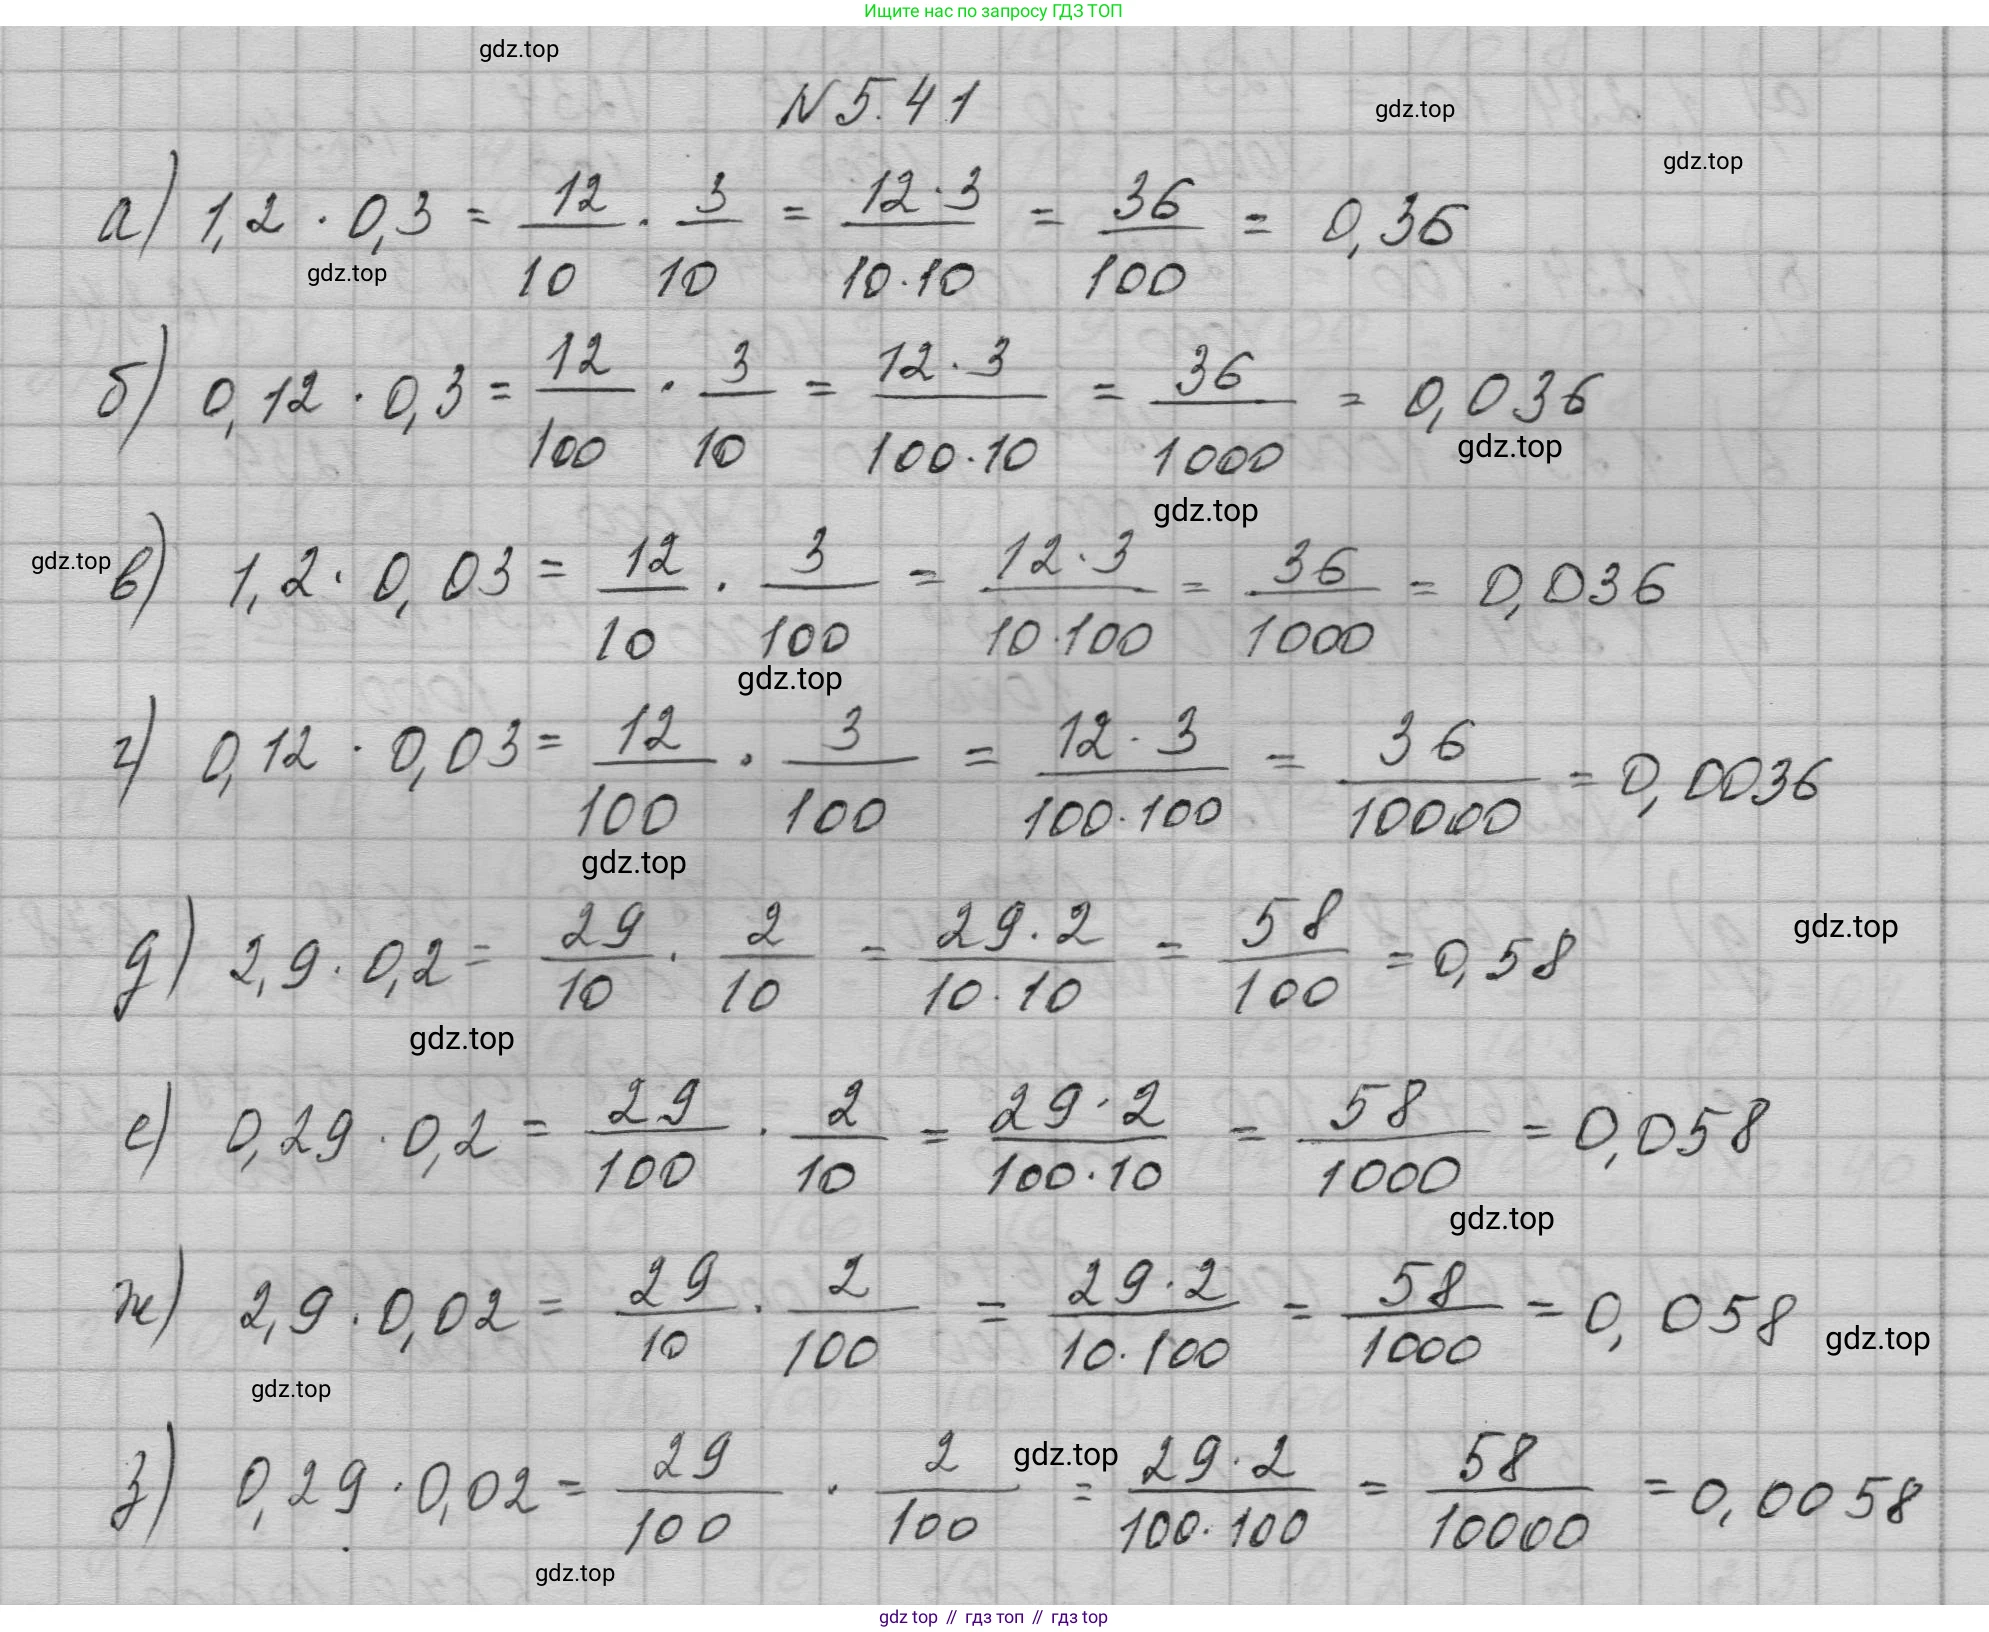 Ищите нас по запросу ГДЗ ТОП
gdz.top
N 5.41
gdz.top
gdz.top
а) 1,2 · 0,3 = 12/10 · 3/10 = 12·3/10·10 = 36/100 = 0,36
gdz.top
б) 0,12 · 0,3 = 12/100 · 3/10 = 12·3/100·10 = 36/1000 = 0,036
gdz.top
gdz.top
gdz.top
в) 1,2 · 0,03 = 12/10 · 3/100 = 12·3/10·100 = 36/1000 = 0,036
gdz.top
г) 0,12 · 0,03 = 12/100 · 3/100 = 12·3/100·100 = 36/10000 = 0,0036
gdz.top
gdz.top
д) 2,9 · 0,2 = 29/10 · 2/10 = 29·2/10·10 = 58/100 = 0,58
gdz.top
е) 0,29 · 0,2 = 29/100 · 2/10 = 29·2/100·10 = 58/1000 = 0,058
gdz.top
ж) 2,9 · 0,02 = 29/10 · 2/100 = 29·2/10·100 = 58/1000 = 0,058
gdz.top
gdz.top
gdz.top
з) 0,29 · 0,02 = 29/100 · 2/100 = 29·2/100·100 = 58/10000 = 0,0058
gdz.top
gdz top // гдз топ // gdz top